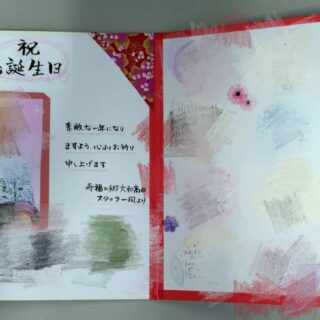 祝
お誕生日
素敵な一年になり
ますよう、心よりお祈り
申し上げます
寿福の郷大和高田
スタッフ一同より